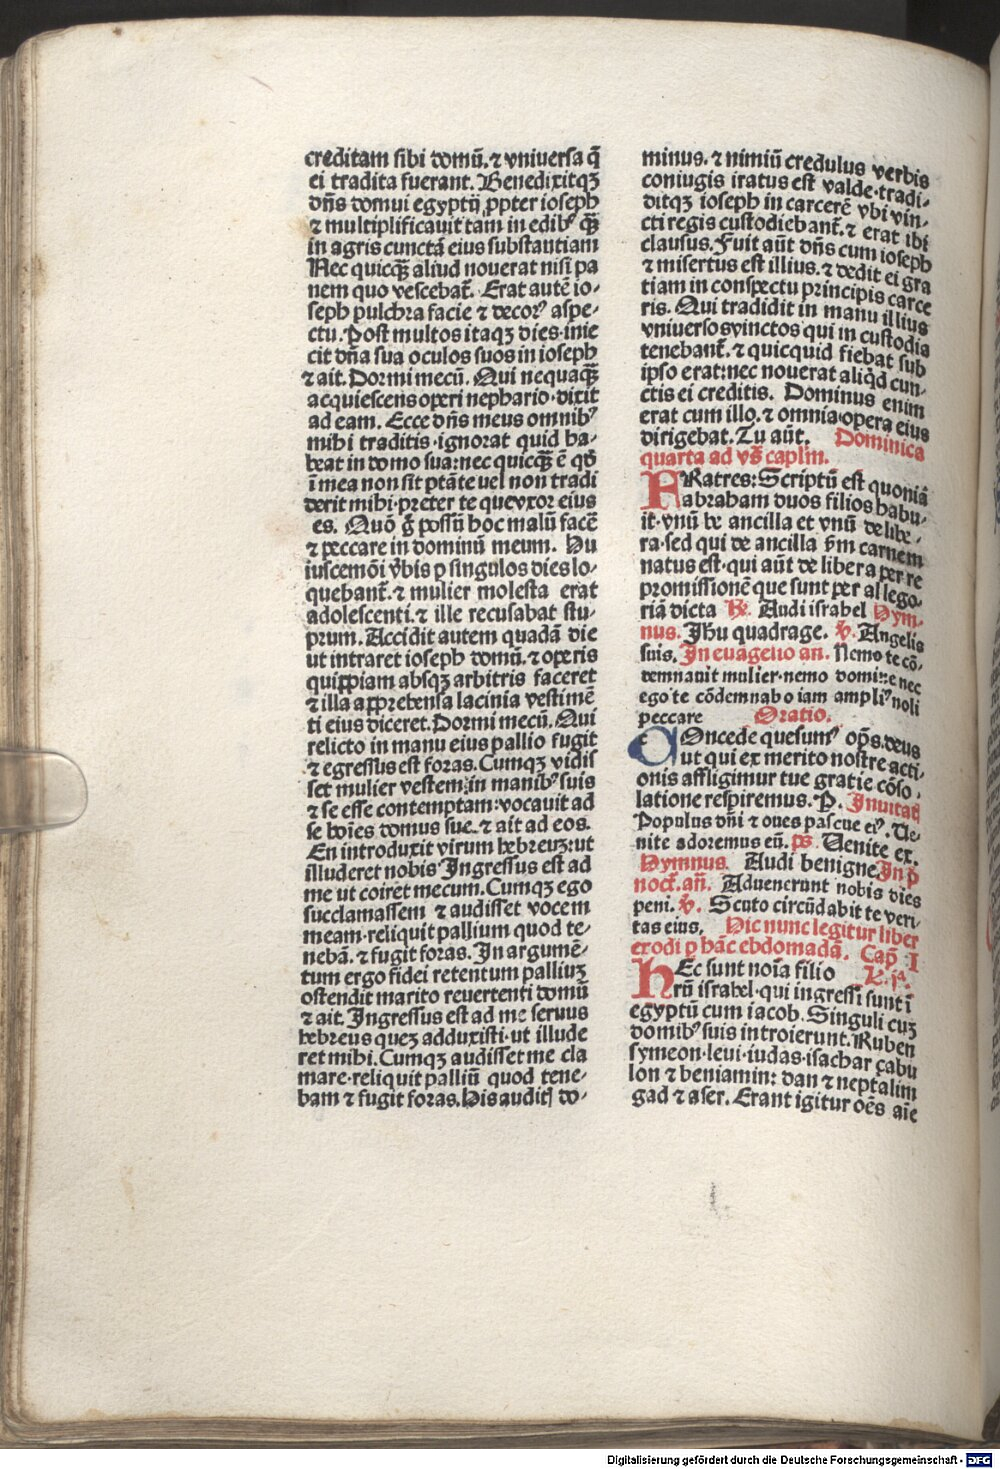 creditam sibi domū. ⁊ vniuersa q̄
ei tradita fuerant. Benedixitqꝫ
dn̄s domui egyptij ꝓpter ioseph
⁊ multiplicauit tam in edibꝰ qȝ̄
in agris cunctā eius substantiam
Nec quicqȝ̄ aliud nouerat nisi pa
nem quo vescebat̄. Erat autē io⸗
seph pulchra facie ⁊ decorꝰ aspe⸗
ctu. Post multos itaqꝫ dies inie
cit dn̄a sua oculos suos in ioseph
⁊ ait. Dormi mecū. Qui nequaqȝ̄
acquiescens operi nephario·dixit
ad eam. Ecce dn̄s meus omnibꝰ
mihi traditis·ignorat quid ha⸗
beat in domo sua: nec quicqȝ̄ ē qd̄
ī mea non sit ptāte vel non tradi
derit mihi·preter te que vxor eius
es. Quō g̊ possū hoc malū facē
⁊ peccare in dominū meum. Hu
iuscemōi v̄bis ꝑ singulos dies lo⸗
quebant̄. ⁊ mulier molesta erat
adolescenti. ⁊ ille recusabat stu⸗
prum. Accidit autem quadā die
ut intraret ioseph domū. ⁊ operis
quippiam absqꝫ arbitris faceret
⁊ illa apprehensa lacinia vestimē
ti eius diceret. Dormi mecū. Qui
relicto in manu eius pallio fugit
⁊ egressus est foras. Cumqꝫ vidis
set mulier vestem in manibꝰ suis
⁊ se esse contemptam: vocauit ad
se hoīes domus sue. ⁊ ait ad eos.
En introduxit virum hebreuꝫ: ut
illuderet nobis Ingressus est ad
me ut coiret mecum. Cumqꝫ ego
succlamassem ⁊ audisset vocem
meam·reliquit pallium quod te⸗
nebā. ⁊ fugit foras. In argumē⸗
tum ergo fidei retentum palliuꝫ
ostendit marito reuertenti domū
⁊ ait. Ingressus est ad me seruus
hebreus queꝫ adduxisti·ut illude
ret mihi. Cumqꝫ audisset me cla
mare·reliquit palliū quod tene⸗
bam ⁊ fugit foras. His auditꝭ do⸗
minus. ⁊ nimiū credulus verbis
coniugis iratus est valde·tradi⸗
ditqꝫ ioseph in carcerē vbi vin⸗
cti regis custodiebant̄. ⁊ erat ibi
clausus. Fuit aūt dn̄s cum ioseph
⁊ misertus est illius. ⁊ dedit ei gra
tiam in conspectu principis carce
ris. Qui tradidit in manu illius
vniuersos vinctos qui in custodia
tenebant̄. ⁊ quicquid fiebat sub
ipso erat: nec nouerat aliqd cun⸗
ctis ei creditis. Dominus enim
erat cum illo. ⁊ omnia opera eius
dirigebat. Tu aūt. Dominica
quarta ad vs̄ caplm̄.
FRatres: Scriptū est quoniā
abraham duos filios habu⸗
it·vnū de ancilla et vnū de libe⸗
ra·sed qui de ancilla s̄m carnem
natus est·qui aūt de libera per re
promissionē que sunt per allego⸗
riā dicta ℟. Audi israhel Hym⸗
nus. Jhu quadrage. ℣. Angelis
suis. In euāgelio an. Nemo te cō⸗
demnauit mulier·nemo domine nec
ego te cōdemnabo iam ampliꝰ noli
peccare Oratio.
COncede quesumꝰ op̄s. deus
ut qui ex merito nostre acti⸗
onis affligimur tue gratie cōso⸗
latione respiremus. P. Inuitat̄
Populus dn̄i ⁊ oues pascue eiꝰ. Ve⸗
nite adoremus eū. ps̄. Venite ex.
Hymnus. Audi benigne In p̄
noct̄. an̄. Aduenerunt nobis dies
peni. ℣. Scuto circūdabit te veri⸗
tas eius. Hic nunc legitur liber
exodi ꝑ hāc ebdomadā. Cap̄ I
HEc sunt noīa filio L. jª.
rū israhel·qui ingressi sunt ī
egyptū cum iacob. Singuli cuꝫ
domibꝰ suis introierunt. Ruben
symeon·leui·iudas·isachar ⁊ zabu
lon ⁊ beniamin: dan ⁊ neptalim
gad ⁊ aser. Erant igitur oēs aīe
Digitalisierung gefördert durch die Deutsche Forschungsgemeinschaft - DFG